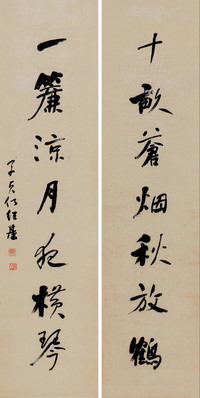 十畝蒼烟秋放鶴
一簾涼月夜橫琴
子貞何紹基